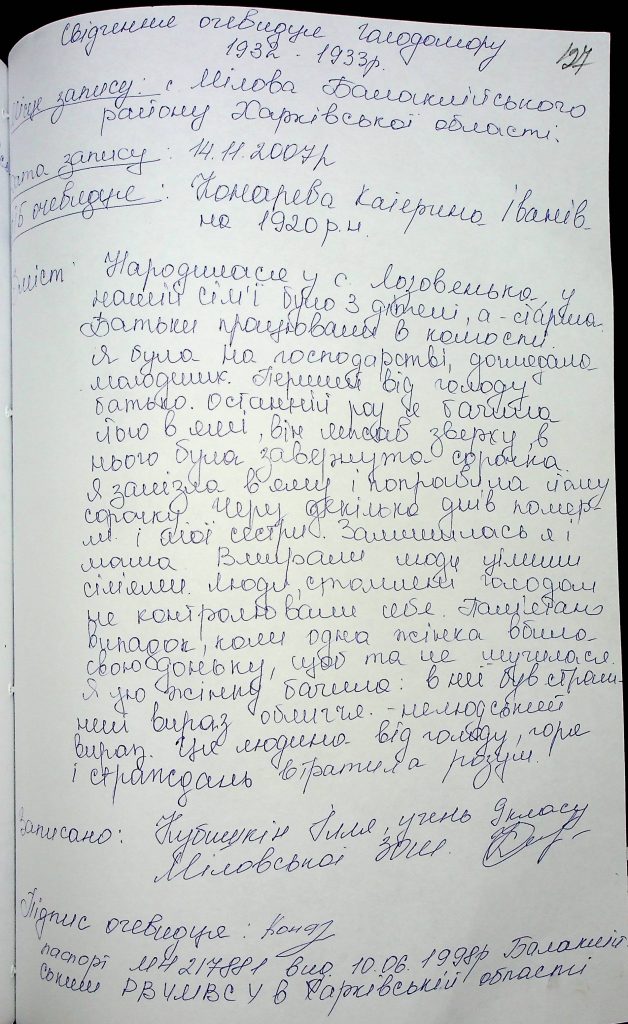 Свідчення очевидця голодомору
1932 - 1933р.
127
Місце запису: с Мілова Балаклійського
району Харківської області.
Дата запису: 14.11.2007р
ПІБ очевидця: Конарева Катерина Іванів-
на 1920 р.н.
Зміст: Народилася у с. Лозовенька, у
нашій сім'ї було 3 дітей, а - старша.
Батьки працювали в колгоспі
Я була на господарстві, доглядала
молодших. Перший від голоду
батько. Останній раз я бачила
його в ямі, він лежав зверху, в
нього була завернута сорочка.
Я залізла в яму і поправила йому
сорочку. Через декілька днів помер-
ли і мої сестри. Залишилась я і
мама Вмирали люди цілими
сім'ями. Люди, стомлені голодом
не контролювали себе. Пам'ятаю
випадок, коли одна жінка вбила
свою доньку, щоб та не мучилася.
Я цю жінку бачила: в неї був страш-
ний вираз обличчя - нелюдський
вираз. Ця людина від голоду, горя
і страждань втратила розум.
Записано: Кубишкін Ілля, учень 9 класу
Міловської ЗОШ.
Підпис очевидця:
паспорт МН 217881 вид. 10.06.1998р Балаклій-
ським РВУМВСУ в Харківській області